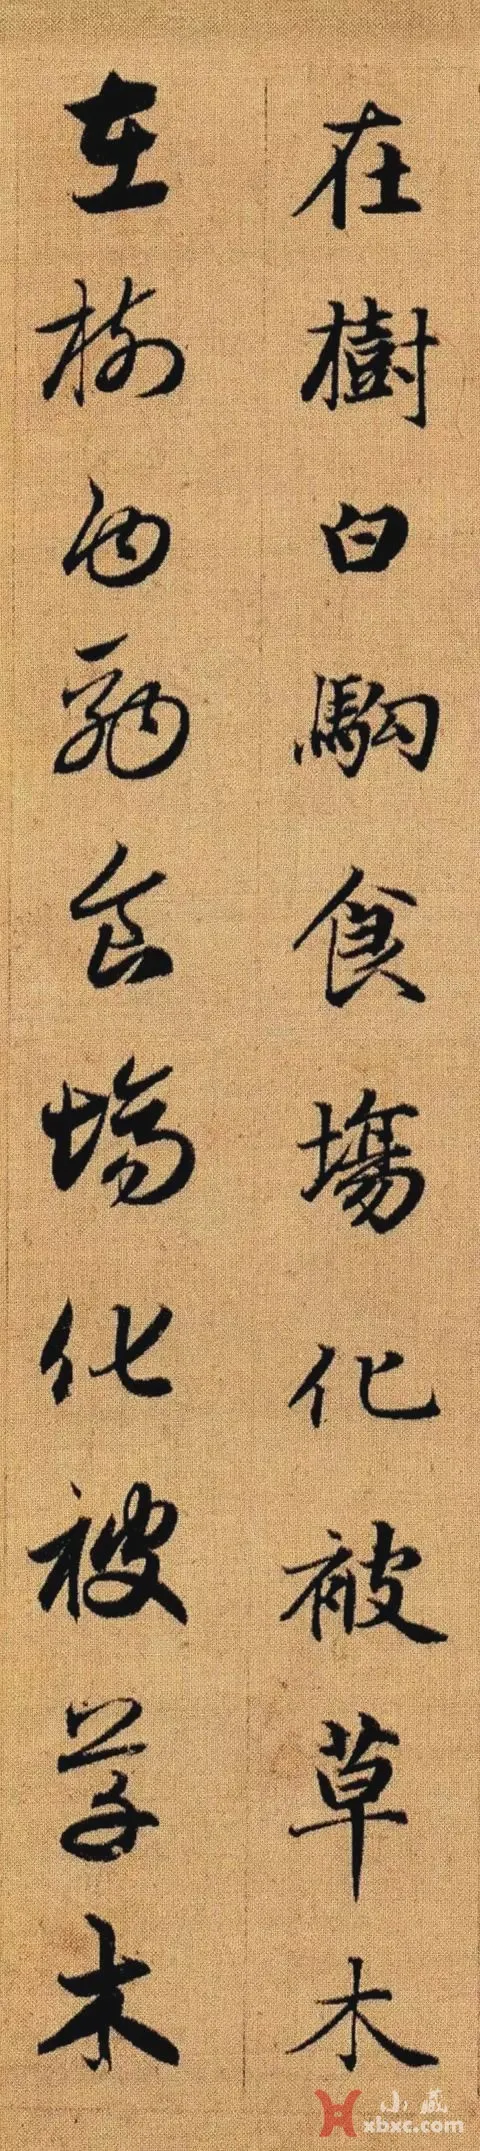 在樹白駒食場化被草木
在樹白駒食場化被草木
小藏
xbxc.com